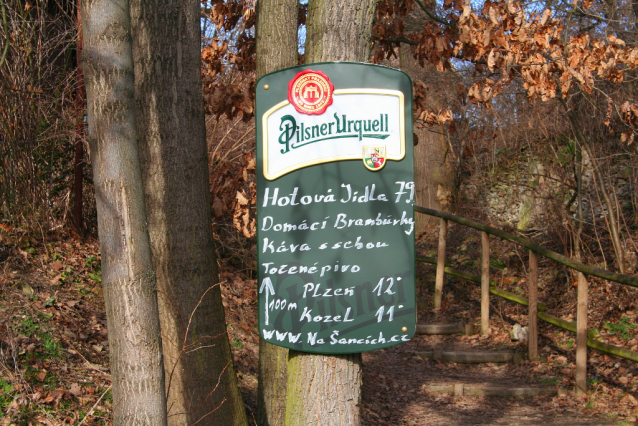 Pilsner Urquell
Hotová Jídla 79,
Domácí Brambůrky
Káva s sebou
Točené pivo
Plzeň 12°
100m
Kozel 11°
www.NaŠancích.cz